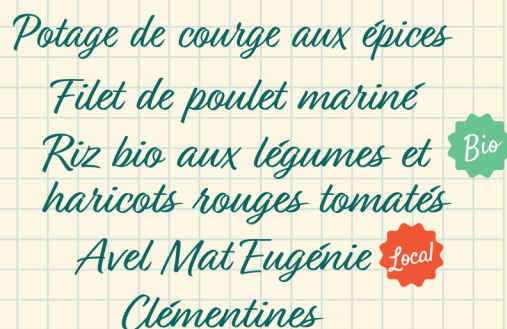 Potage de courge aux épices
Filet de poulet mariné
Riz bio aux légumes et
Bio
haricots rouges tomatés
Avel Mat Eugénie
Local
Clémentines